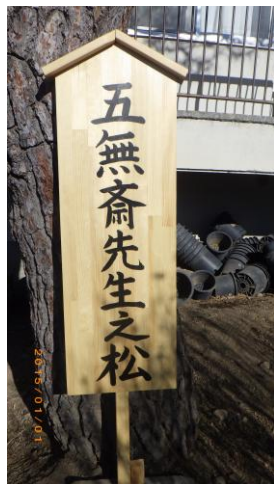 五無斎先生之松
2015/01/01